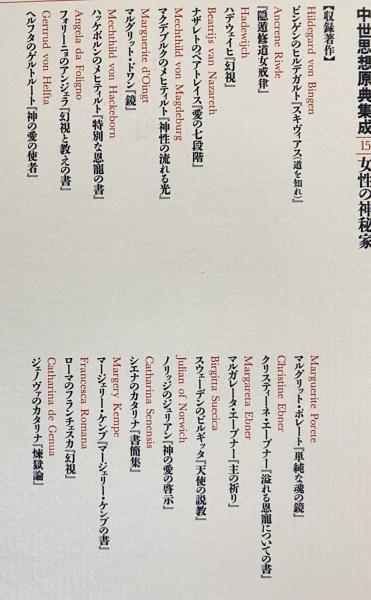 中世思想原典集成 15 女性の神秘家
【収録著作】
Hildegard von Bingen
ビンゲンのヒルデガルト『スキヴィアス(道を知れ)』
Ancrene Riwle
『隠遁修道女戒律』
Hadewijch
ハデウェイヒ『幻視』
Beatrijs van Nazareth
ナザレトのベアトレイス『愛の七段階』
Mechthild von Magdeburg
マクデブルクのメヒティルト『神性の流れる光』
Marguerite d'Oingt
マルグリット・ドワン『鏡』
Mechthild von Hackeborn
ハッケボルンのメヒティルト『特別な恩寵の書』
Angela da Foligno
フォリーニョのアンジェラ『幻視と教えの書』
Gertrud von Helfta
ヘルフタのゲルトルート『神の愛の使者』
Marguerite Porete
マルグリット・ポレート『単純な魂の鏡』
Christine Ebner
クリスティーネ・エーブナー『溢れる恩寵についての書』
Margareta Ebner
マルガレータ・エーブナー『主の祈り』
Birgitta Suecica
スウェーデンのビルギッタ『天使の説教』
Julian of Norwich
ノリッジのジュリアン『神の愛の啓示』
Catharina Senensis
シエナのカタリナ『書簡集』
Margery Kempe
マージェリー・ケンプ『マージェリー・ケンプの書』
Francesca Romana
ローマのフランチェスカ『幻視』
Catharina de Genua
ジェノヴァのカタリナ『煉獄論』